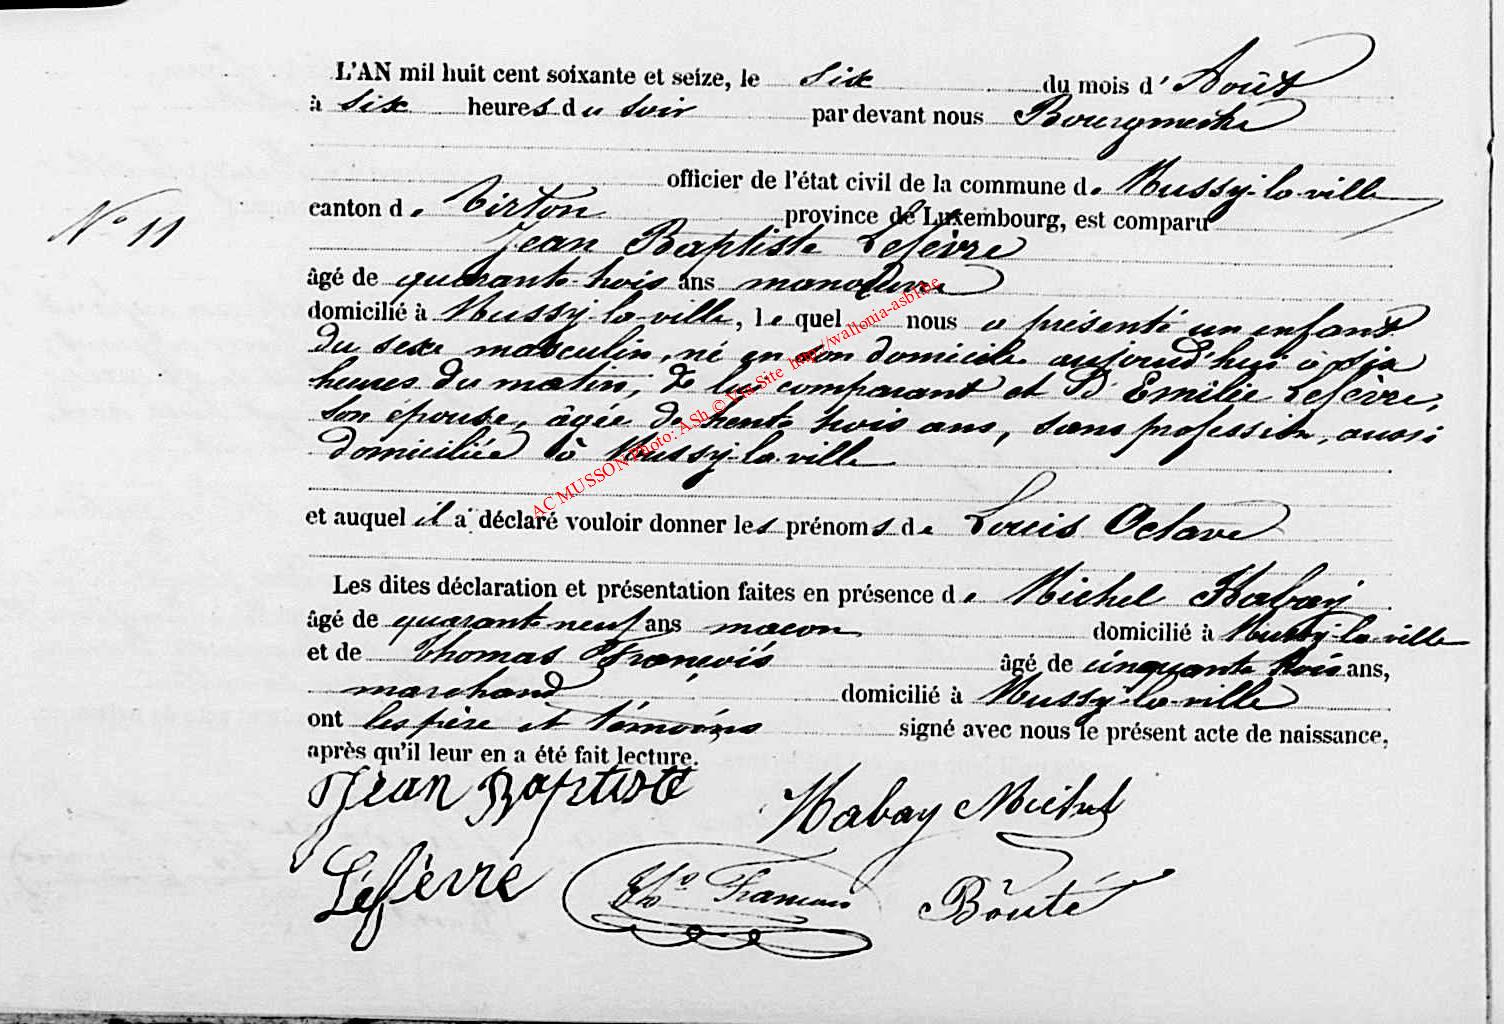 L'AN mil huit cent soixante et seize, le six du mois d' Août
à six heures du soir par devant nous Bourgmestre
officier de l'état civil de la commune de Mussy-la-ville
N° 11
canton de Virton province de Luxembourg, est comparu
Jean Baptiste Lefèvre
âgé de quarante-trois ans manœuvre
domicilié à Mussy-la-ville, lequel nous a présenté un enfant
du sexe masculin, né en son domicile aujourd'hui à six
heures du matin, de lui comparant et d'Emélie Lefèvre,
son épouse, âgée de trente trois ans, sans profession, aussi
domiciliée à Mussy-la-ville
et auquel il a déclaré vouloir donner les prénoms de Louis Octave
Les dites déclaration et présentation faites en présence de Michel Habay
âgé de quarante neuf ans maçon domicilié à Mussy-la-ville
et de Thomas François âgé de cinquante trois ans,
marchand domicilié à Mussy-la-ville
ont les père et témoins signé avec nous le présent acte de naissance,
après qu'il leur en a été fait lecture.
Jean Baptiste Habay Michel
Lefèvre Th° François Bouté
AC MUSSON Photo: ASh © Via Site http://wallonia-asbl.be